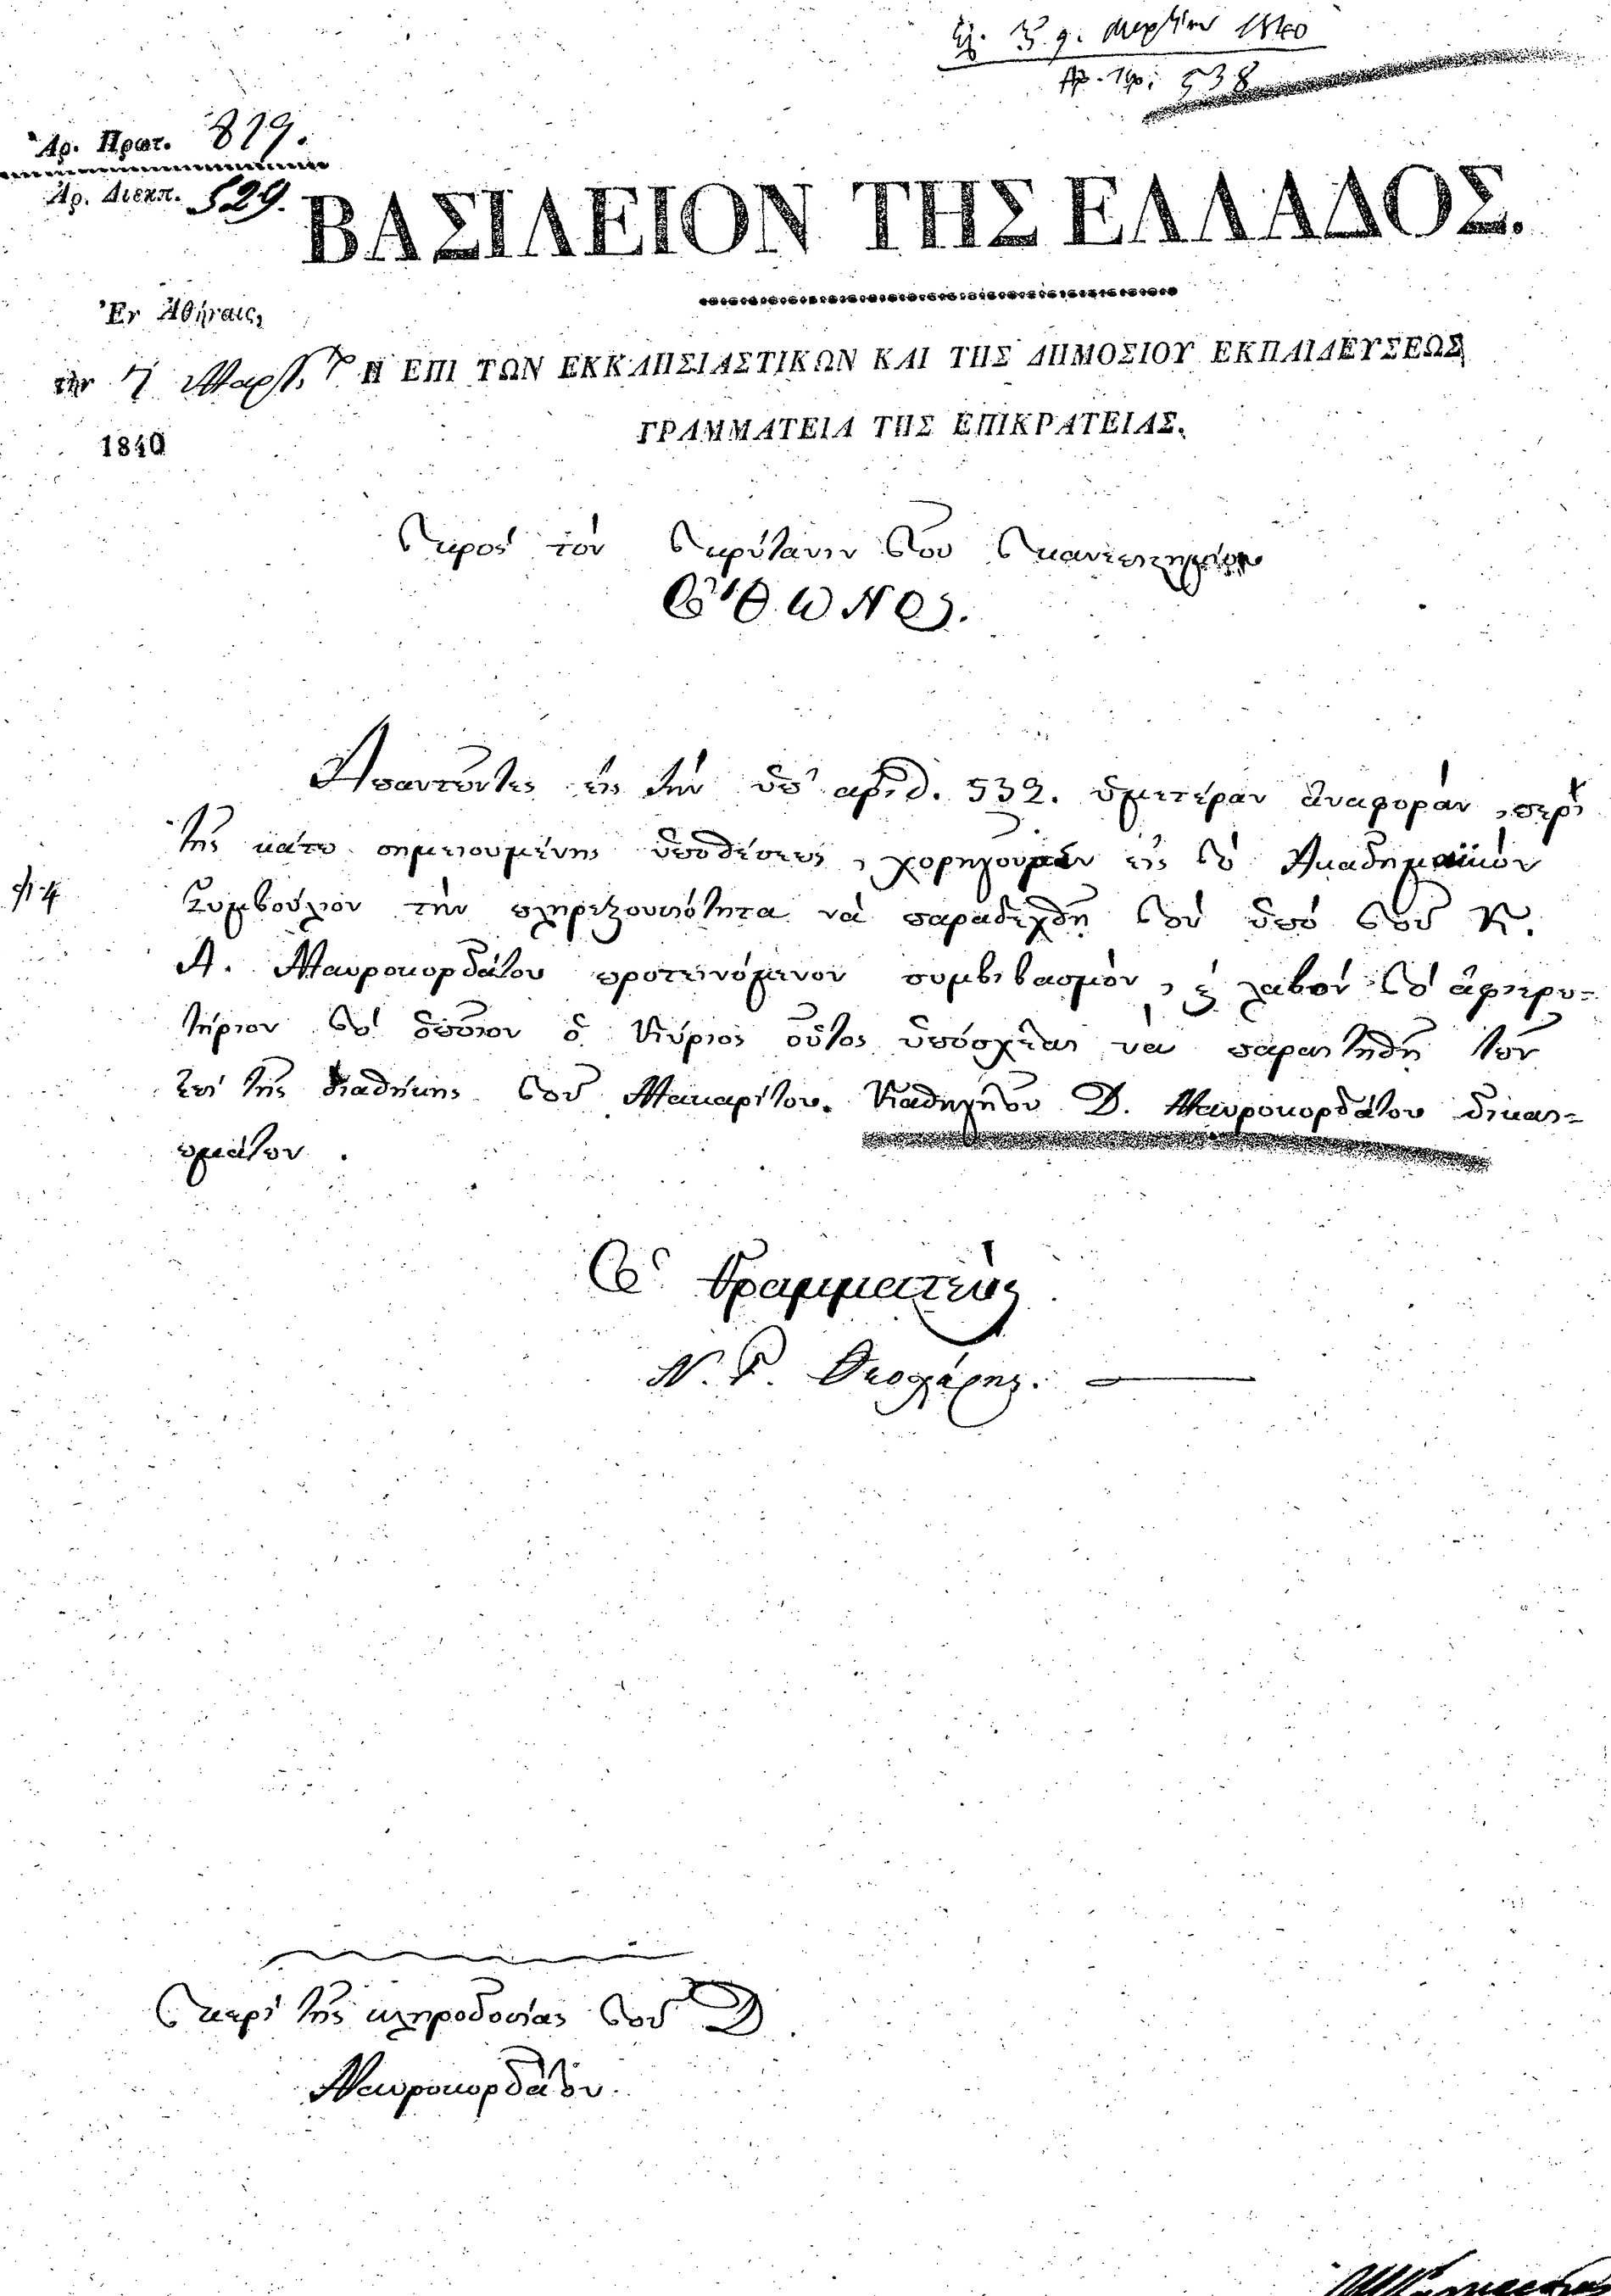 Ἀρ. Πρωτ. 819.
Ἀρ. Διεκπ. 529.
Μαρτίου 1840
Αρ. Πρ: 538
ΒΑΣΙΛΕΙΟΝ ΤΗΣ ΕΛΛΑΔΟΣ.
Ἐν Ἀθήναις,
τὴν 7 Μαρτ.
1840
Η ΕΠΙ ΤΩΝ ΕΚΚΛΗΣΙΑΣΤΙΚΩΝ ΚΑΙ ΤΗΣ ΔΗΜΟΣΙΟΥ ΕΚΠΑΙΔΕΥΣΕΩΣ
ΓΡΑΜΜΑΤΕΙΑ ΤΗΣ ΕΠΙΚΡΑΤΕΙΑΣ.
Πρὸς τὸν Πρύτανιν τοῦ Πανεπιστημίου
ὌΘΩΝΟΣ.
Ἀπαντῶντες εἰς τὴν ὑπ' ἀριθ. 532. ὑμετέραν ἀναφοράν, περὶ
τῆς κάτω σημειουμένης ὑποθέσεως, χορηγοῦμεν εἰς τὸ Ἀκαδημαϊκὸν
Συμβούλιον τὴν πληρεξουσιότητα νὰ παραδεχθῇ τὸν ὑπὸ τοῦ Κ.
Α. Μαυροκορδάτου προτεινόμενον συμβιβασμόν, λαβὸν τὸ ἀφιερω=
τήριον τὸ ὁποῖον ὁ Κύριος οὗτος ὑπόσχεται νὰ παραιτηθῇ τῶν
ἐπὶ τῆς διαθήκης τοῦ Μακαρίτου Καθηγητοῦ Δ. Μαυροκορδάτου δικαι=
ωμάτων.
Ὁ Γραμματεὺς
Ν. Γ. Θεοχάρης.
Περὶ τῆς κληροδοσίας τοῦ Δ.
Μαυροκορδάτου.